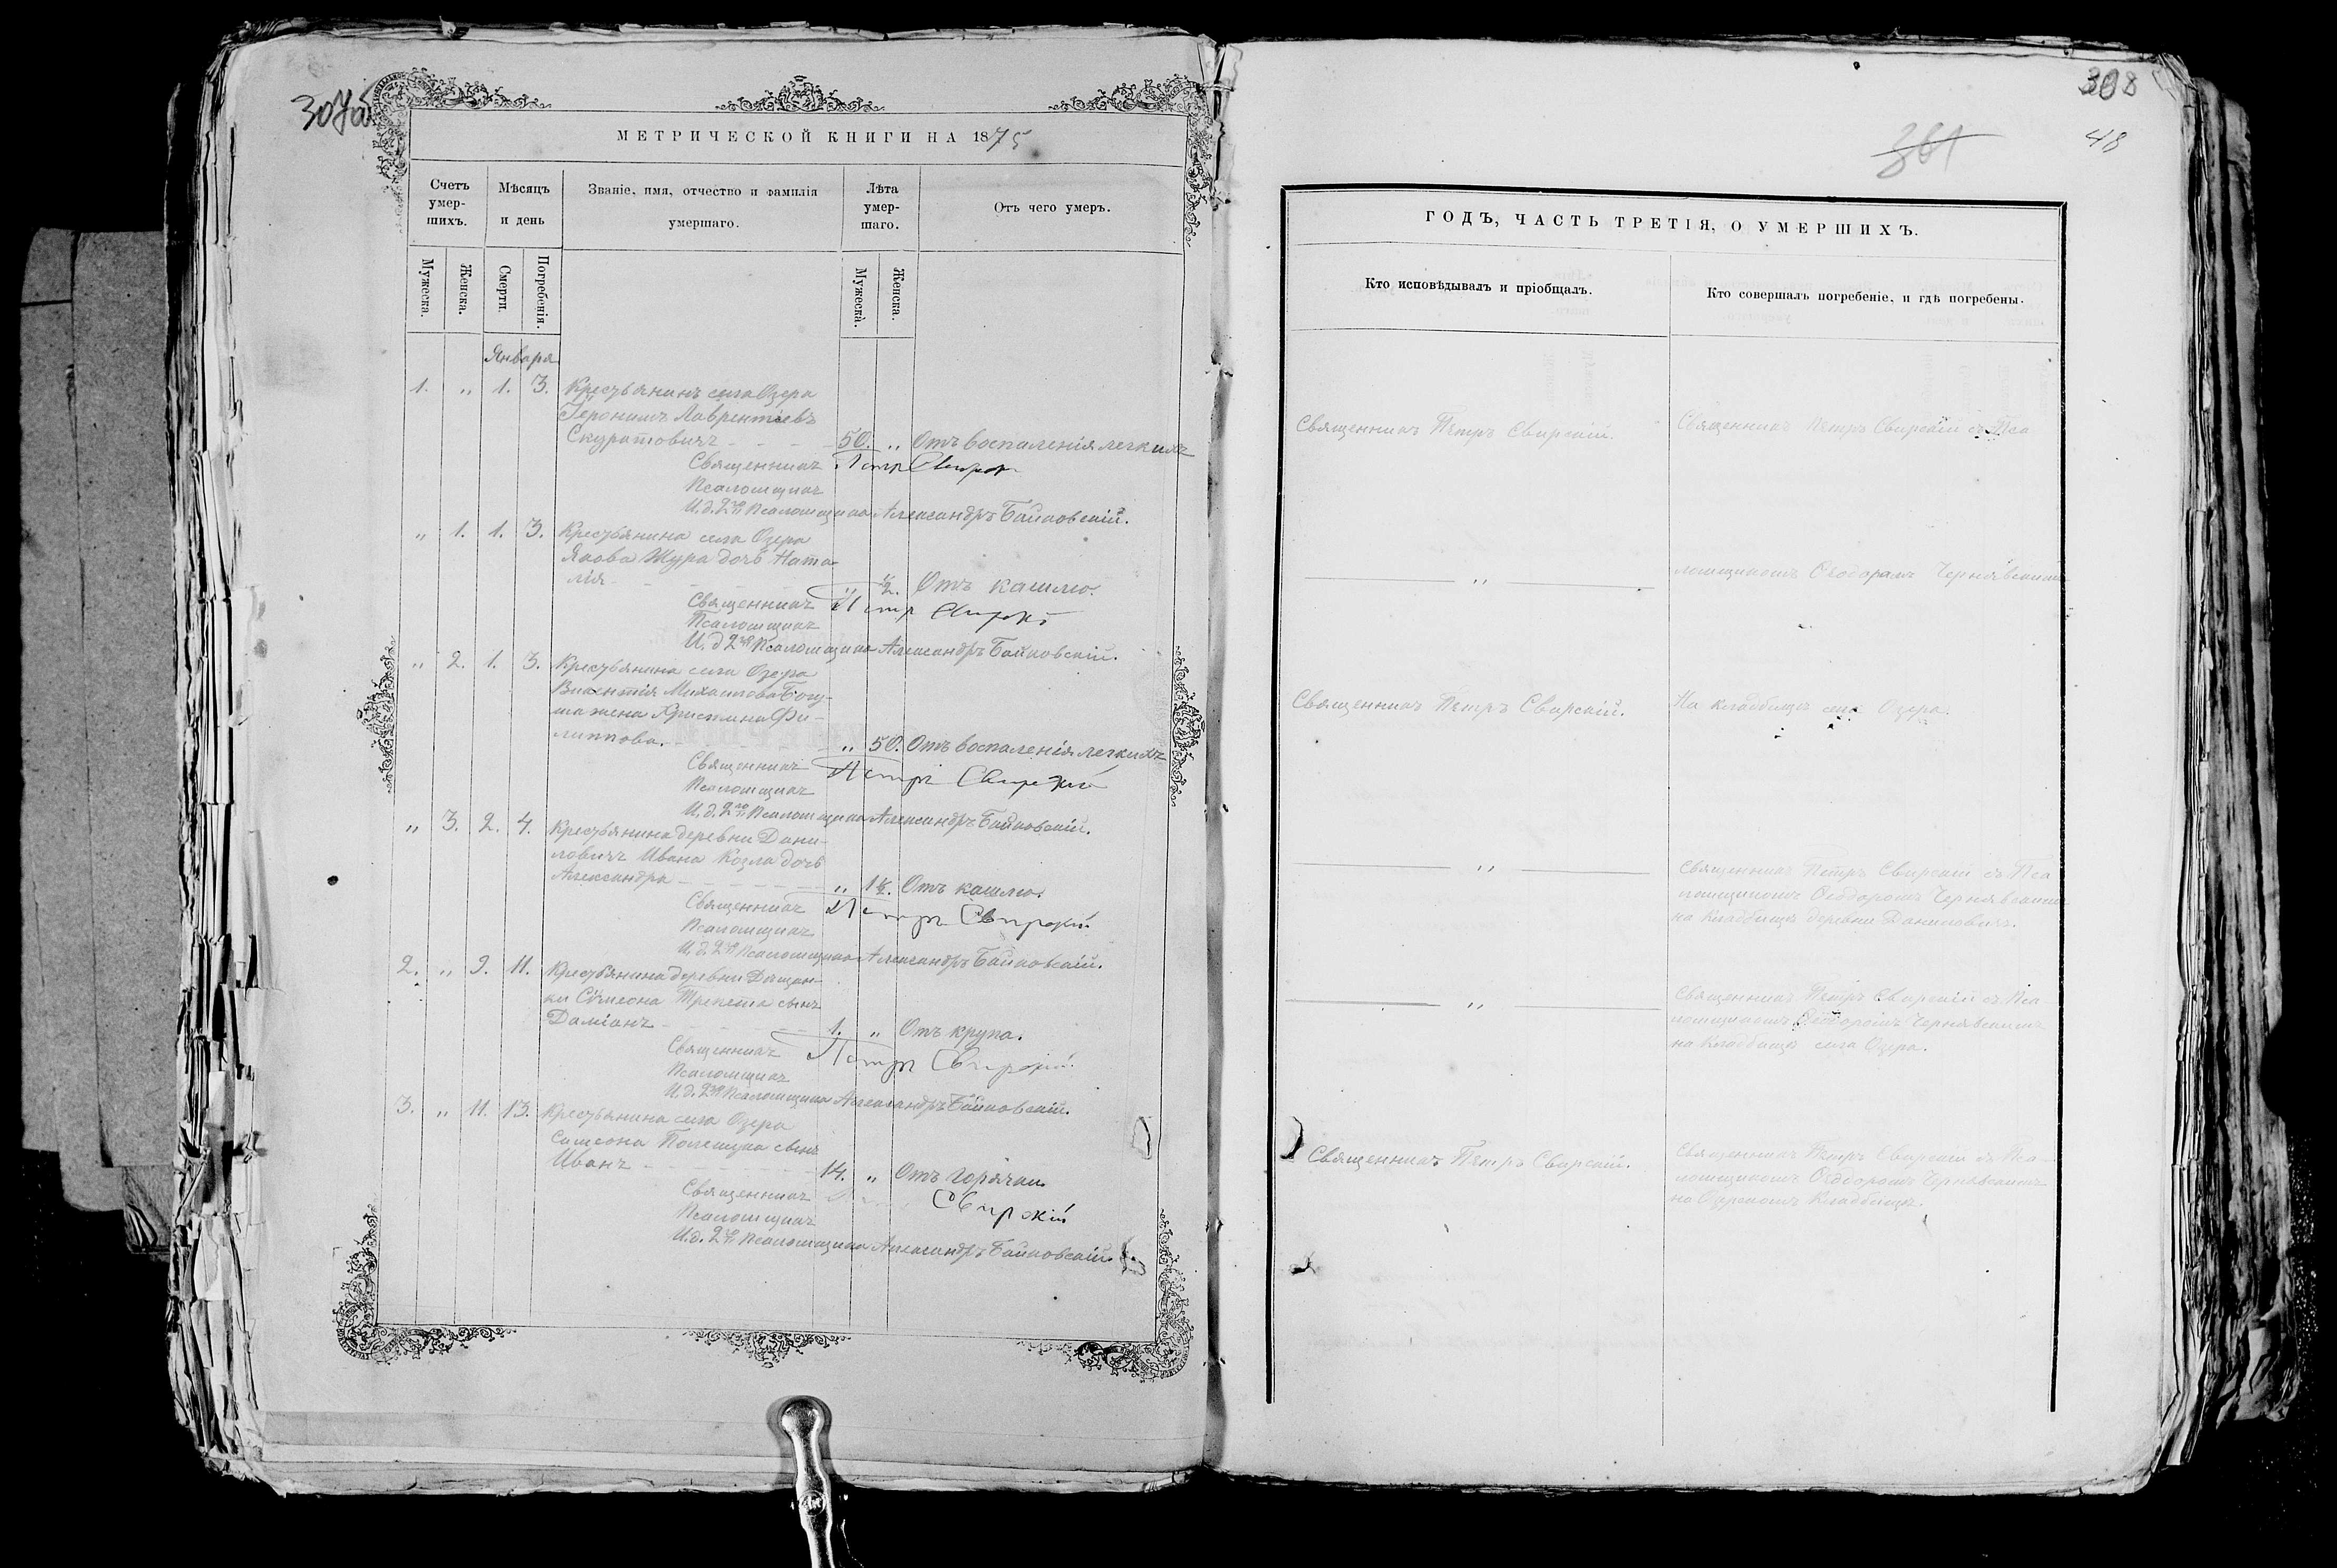 307об
МЕТРИЧЕСКОЙ КНИГИ НА 1875
Счетъ умер-шихъ.
Мѣсяцъ и день
Званіе, имя, отчество и фамилія умершаго.
Лѣта умер-шаго.
Отъ чего умеръ.
Мужеска.
Женска.
Смерти.
Погребенія.
Мужеска.
Женска.
Января
1. „ 1. 3. Крестьянинъ села Озера
Іеронимъ Лаврентіевъ
Скуратовичъ 50. „ Отъ воспаленія легкихъ
Священникъ Петръ Свирскій
Псаломщикъ
И. д. 2го Псаломщика Александръ Байковскій.
„ 1. 1. 3. Крестьянина села Озера
Якова Жура дочь Ната-
лія „ ½. Отъ кашлю.
Священникъ Петръ Свирскій
Псаломщикъ
И. д. 2го Псаломщика Александръ Байковскій.
„ 2. 1. 3. Крестьянина села Озера
Викентія Михаилова Богу-
жена Христина Фи-
липпова. „ 50. Отъ воспаленія легкихъ
Священникъ Петръ Свирскій
Псаломщикъ
И. д. 2го Псаломщика Александръ Байковскій.
„ 3. 2. 4. Крестьянина деревни Дани-
ловичъ Ивана Козла дочь
Александра „ 1½. Отъ кашлю.
Священникъ Петръ Свирскій
Псаломщикъ
И. д. 2го Псаломщика Александръ Байковскій.
2. „ 9. 11. Крестьянина деревни Дящен-
ки Сѵмеона Трепета сынъ
Даміанъ 1. „ Отъ крупа.
Священникъ Петръ Свирскій
Псаломщикъ
И. д. 2го Псаломщика Александръ Байковскій.
3. „ 11. 13. Крестьянина села Озера
Самсона Полещука сынъ
Иванъ 14. „ Отъ горячки.
Священникъ Свирскій
Псаломщикъ
И. д. 2го Псаломщика Александръ Байковскій.
308
48
361
ГОДЪ, ЧАСТЬ ТРЕТІЯ, О УМЕРШИХЪ.
Кто исповѣдывалъ и пріобщалъ.
Кто совершалъ погребеніе, и гдѣ погребены.
Священникъ Петръ Свирскій.
Священникъ Петръ Свирскій съ Пса
„
ломщикомъ Ѳеодоромъ Чернявскимъ
Священникъ Петръ Свирскій.
На кладбищѣ села Озера.
„
Священникъ Петръ Свирскій съ Пса
ломщикомъ Ѳеодоромъ Чернявскимъ
на кладбищѣ деревни Даниловичъ.
„
Священникъ Петръ Свирскій съ Пса
ломщикомъ Ѳеодоромъ Чернявскимъ
на кладбищѣ села Озера.
Священникъ Петръ Свирскій.
Священникъ Петръ Свирскій съ Пса-
ломщикомъ Ѳеодоромъ Чернявскимъ
на Озерскомъ кладбищѣ.